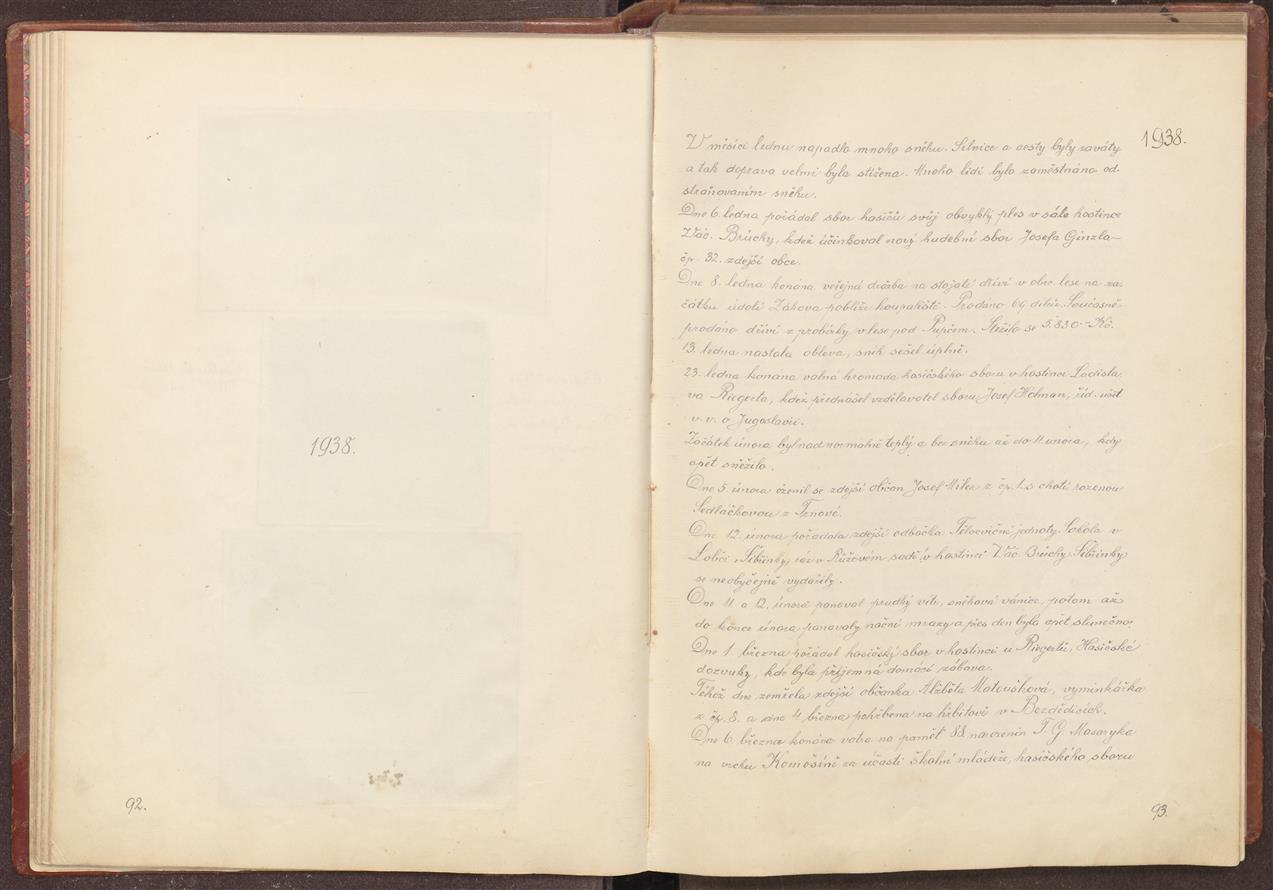 1938.
92.
1938.
V měsíci lednu napadlo mnoho sněhu. Silnice a cesty byly zaváty
a tak doprava velmi byla stížena. Mnoho lidí bylo zaměstnáno od-
straňovaním sněhu.
Dne 6. ledna pořádal sbor hasičů svůj obvyklý ples v sále hostince
Václ. Brůchy, kdež účinkoval nový hudební sbor Josefa Ginzla
čp. 32. zdejší obce.
Dne 8. ledna konána veřejná dražba na stojaté dříví v obec. lese na za-
čátku údolí Žákova poblíže koupaliště. Prodáno 69 dílů. Současně
prodáno dříví z probírky v lese pod Pupčem. Stržilo se 5.830.- Kč.
13. ledna nastala obleva, sníh sešel úplně.
23. ledna konána valná hromada hasičského sboru v hostinci Ladisla-
va Riegerta, kdež přednášel vzdělavatel sboru Josef Holman, říd. učit.
v. v. o Jugoslavii.
Začátek února byl nadnormálně teplý a bez sněhu až do 11. února, kdy
opět sněžilo.
Dne 5. února oženil se zdejší občan Josef Miler z čp. 1. s chotí rozenou
Sedláčkovou z
Dne 12. února pořádala zdejší odbočka Tělocvičné jednoty Sokola v
Lobči „Šibřinky, ráz v Růžovém sadě“, v hostinci Václ. Brůchy. Šibřinky
se neobyčejně vydařily.
Dne 11. a 12. února panoval prudký vítr, sněhová vánice, potom až
do konce února panovaly noční mrazy a přes den bylo opět slunečno.
Dne 1. března pořádal hasičský sbor v hostinci u Riegertů, Hasičské
dozvuky, kde byla příjemná domácí zábava.
Téhož dne zemřela zdejší občanka Alžběta Matoušková, vyminkářka
z čp. 8. a dne 4. března pohřbena na hřbitově v Bezdědicích.
Dne 6. března konána vatra na paměť 88. narozenin T. G. Masaryka
na vrchu Komošíně za účasti školní mládeže, hasičského sboru
93.